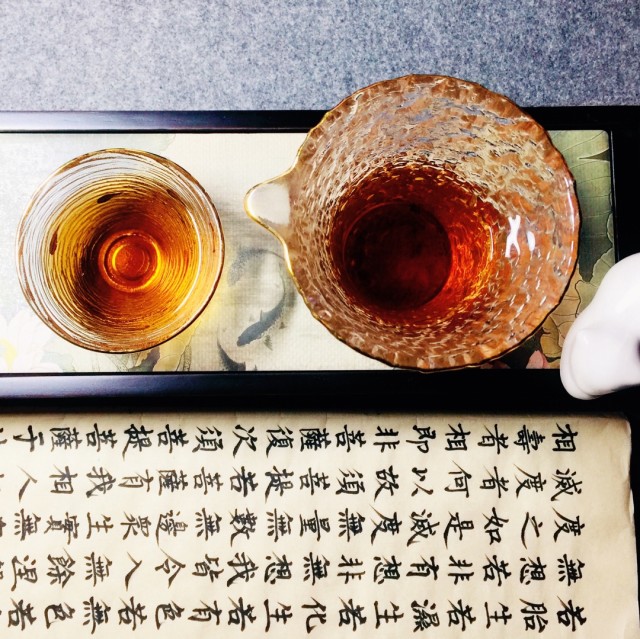 若胎生若濕生若化生若有色若無色若
無想若非有想非無想我皆令入無餘涅
度之如是滅度無量無數無邊眾生實無
滅度者何以故須菩提若菩薩有我相人
相壽者相即非菩薩復次須菩提菩薩